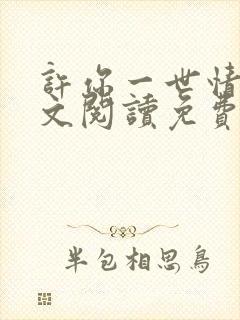 許你一世情
文閱讀免費
半包相思鳥